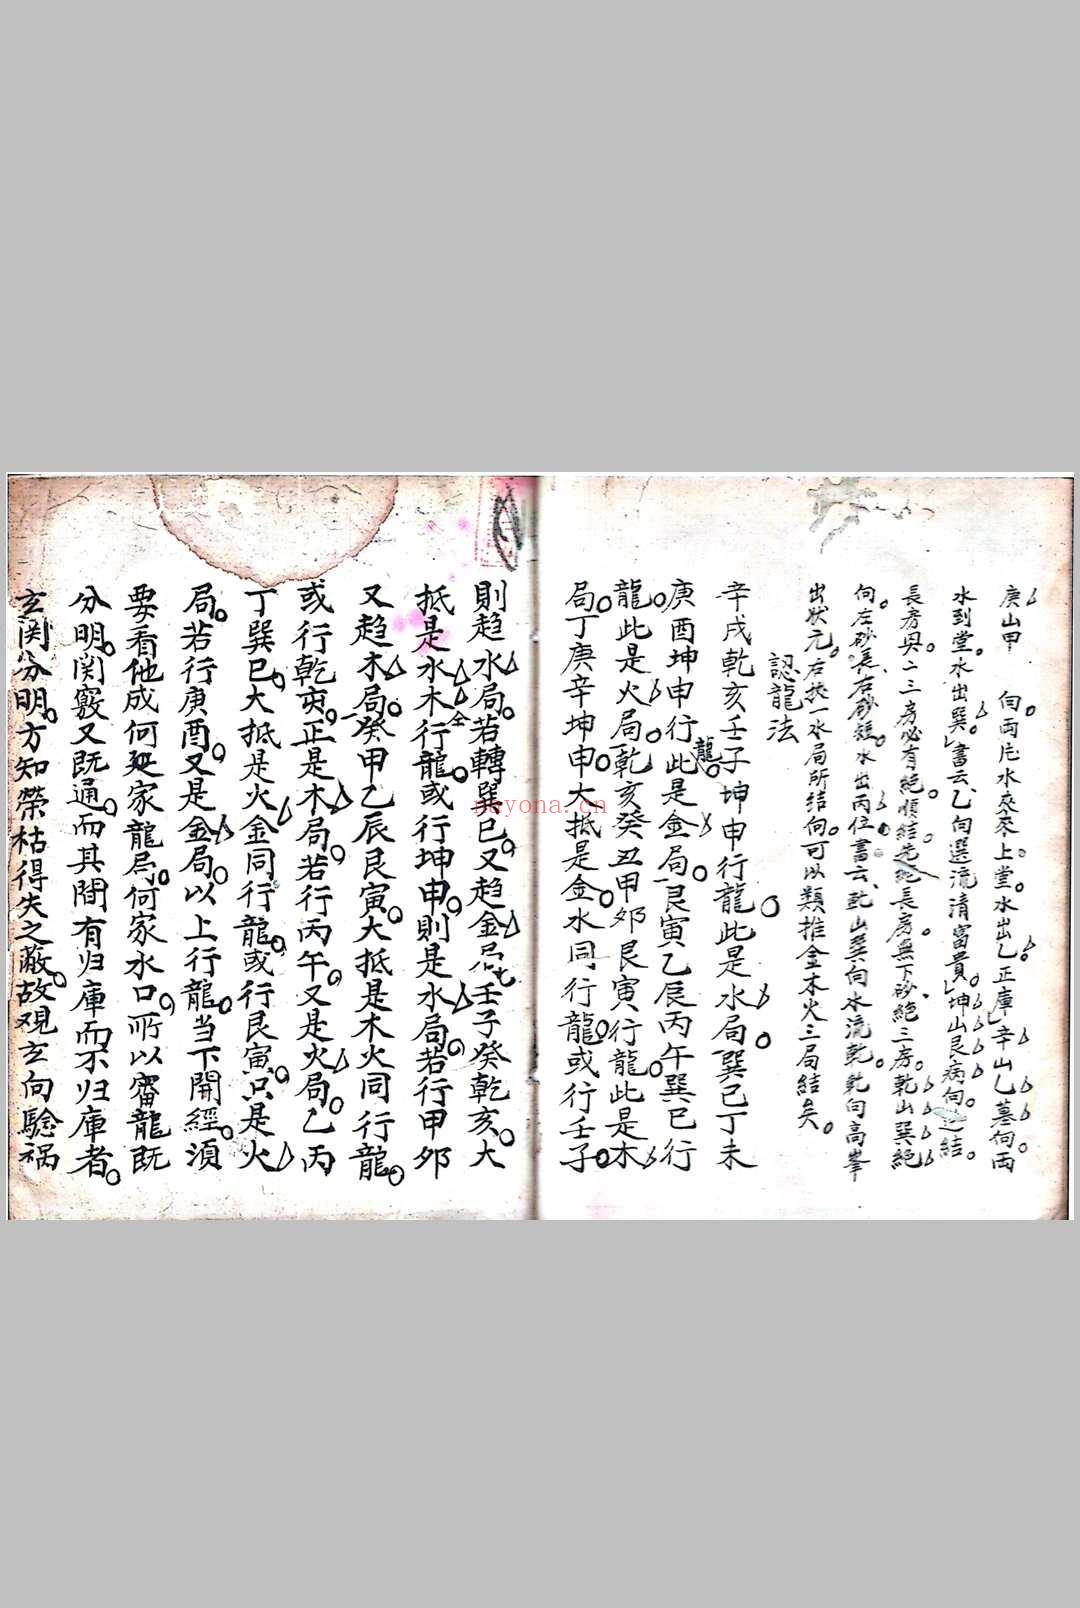 庚山甲 向両片水來來上堂水出乙正庫辛山乙墓向両
水到堂水出巽書云乙向選流清富貴坤山艮病向結
長房與二三房必有絕順結先絕長房無下砂絕三房乾山巽絕
向左砂長右砂短水出丙位書云乾山巽向水流乾乾向高峯
出狀元右挨一水局所結向可以類推金木火三局結矣
認龍法
辛戌乾亥壬子坤申行龍此是水局巽巳丁未
庚酉坤申行龍此是金局艮寅乙辰丙午巽巳行
龍此是火局乾亥癸丑甲卯艮寅行龍此是木
局丁庚辛坤申大抵是金水同行龍或行壬子
則趋水局若轉巽巳又趋金局壬子癸乾亥大
抵是水木全行龍或行坤申則是水局若行甲卯
又趋木局癸甲乙辰艮寅大抵是木火同行龍
或行乾亥正是木局若行丙午又是火局乙丙
丁巽巳大抵是火金同行龍或行艮寅只是火
局若行庚酉又是金局以上行龍当下開經須
要看他成何家龍為何家水口所以審龍既
分明関竅又既通而其間有归庫而不归庫者
玄関分明方知榮枯得失之蔽故观玄向驗禍
nayona.cn